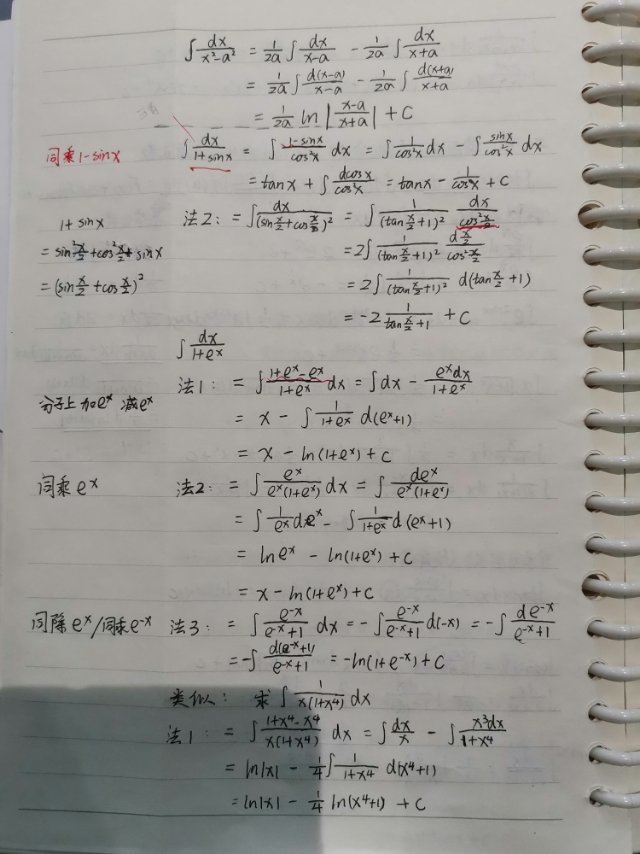 ∫ dx/(x²-a²) = 1/2a ∫ dx/(x-a) - 1/2a ∫ dx/(x+a)
= 1/2a ∫ d(x-a)/(x-a) - 1/2a ∫ d(x+a)/(x+a)
= 1/2a ln |(x-a)/(x+a)| + C
同乘1-sinx ∫ dx/(1+sinx) = ∫ (1-sinx)/cos²x dx = ∫ 1/cos²x dx - ∫ sinx/cos²x dx
= tanx + ∫ dcosx/cos²x = tanx - 1/cosx + C
1+sinx 法2: = ∫ dx/(sin x/2 + cos x/2)² = ∫ 1/(tan x/2 +1)² dx/cos² x/2
= sin² x/2 + cos² x/2 + sinx = 2∫ 1/(tan x/2 +1)² d x/2 /cos² x/2
= (sin x/2 + cos x/2)² = 2∫ 1/(tan x/2 +1)² d(tan x/2 +1)
= -2 1/(tan x/2 +1) + C
∫ dx/(1+eˣ)
分子上加eˣ减eˣ 法1: = ∫ (1+eˣ-eˣ)/(1+eˣ) dx = ∫ dx - eˣdx/(1+eˣ)
= x - ∫ 1/(1+eˣ) d(eˣ+1)
= x - ln(1+eˣ) + C
同乘eˣ 法2: = ∫ eˣ/(eˣ(1+eˣ)) dx = ∫ deˣ/(eˣ(1+eˣ))
= ∫ 1/eˣ deˣ - ∫ 1/(1+eˣ) d(eˣ+1)
= lneˣ - ln(1+eˣ) + C
= x - ln(1+eˣ) + C
同除eˣ/同乘e⁻ˣ 法3: = ∫ e⁻ˣ/(e⁻ˣ+1) dx = -∫ e⁻ˣ/(e⁻ˣ+1) d(-x) = -∫ de⁻ˣ/(e⁻ˣ+1)
= -∫ d(e⁻ˣ+1)/(e⁻ˣ+1) = -ln(1+e⁻ˣ) + C
类似: 求 ∫ 1/(x(1+x⁴)) dx
法1: = ∫ (1+x⁴-x⁴)/(x(1+x⁴)) dx = ∫ dx/x - ∫ x³dx/(1+x⁴)
= ln|x| - 1/4 ∫ 1/(1+x⁴) d(x⁴+1)
= ln|x| - 1/4 ln(x⁴+1) + C